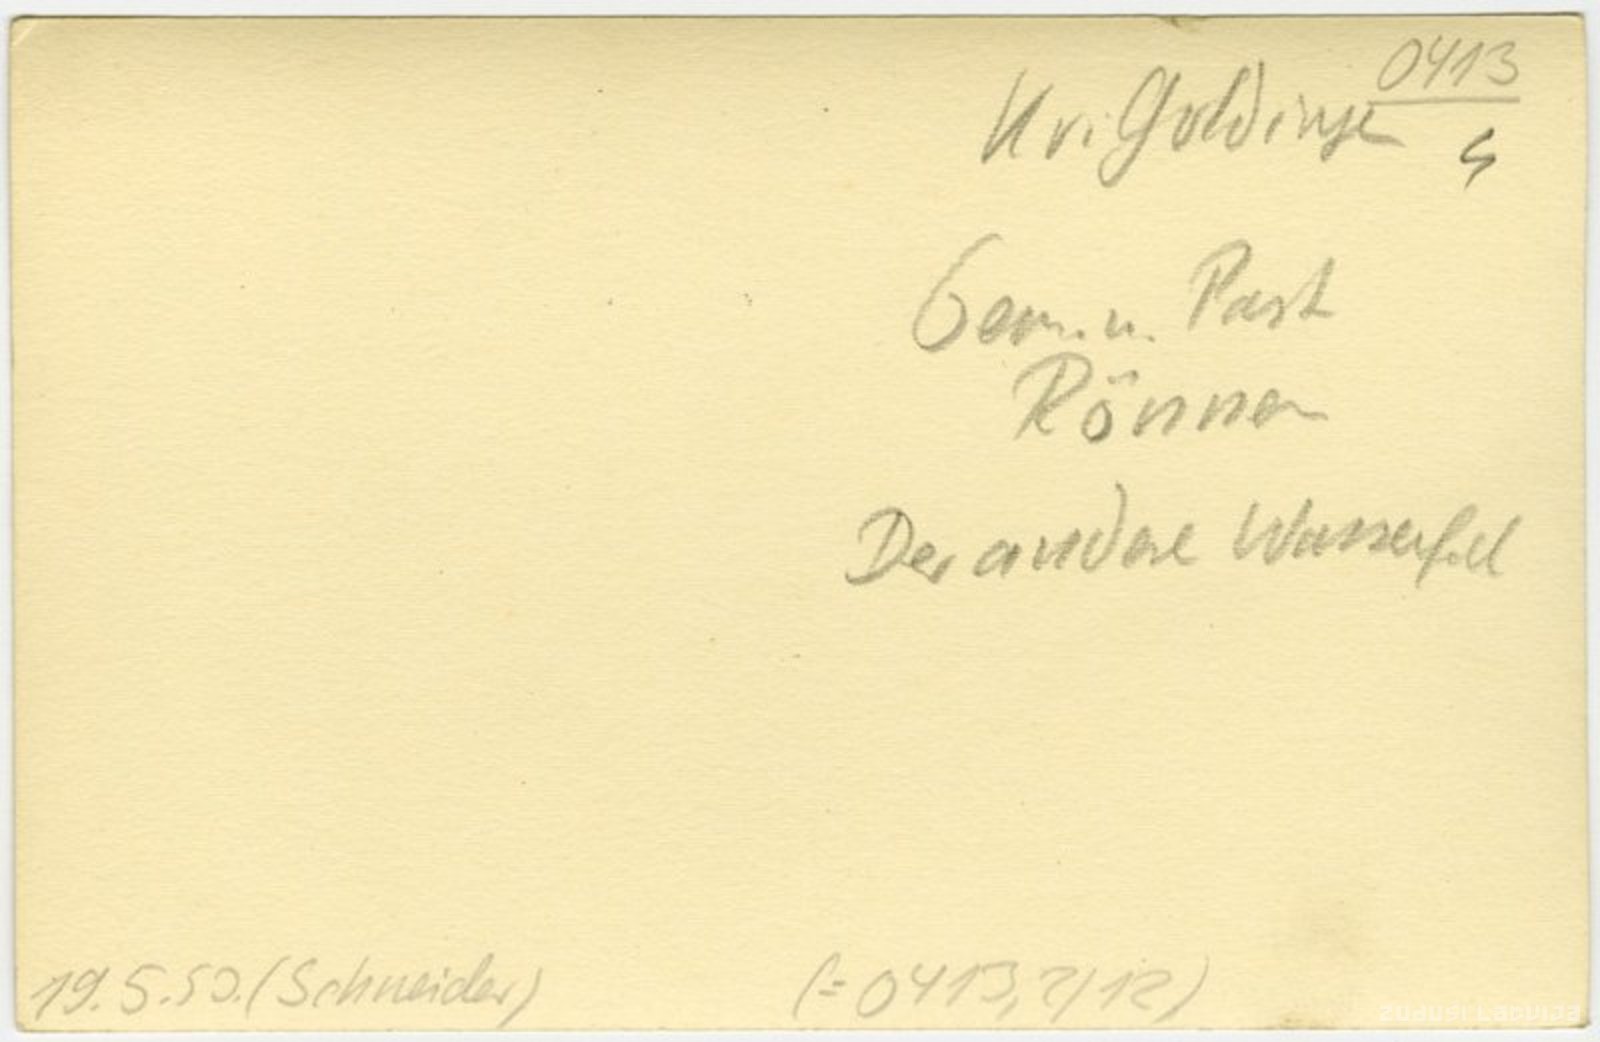 0413
Kr. Goldingen
5
Gem. u. Past
Rönnen
Der andere Wasserfall
19.5.50. (Schneider)
(= 0413, 2/12)
ZUDUSI LATVIJA